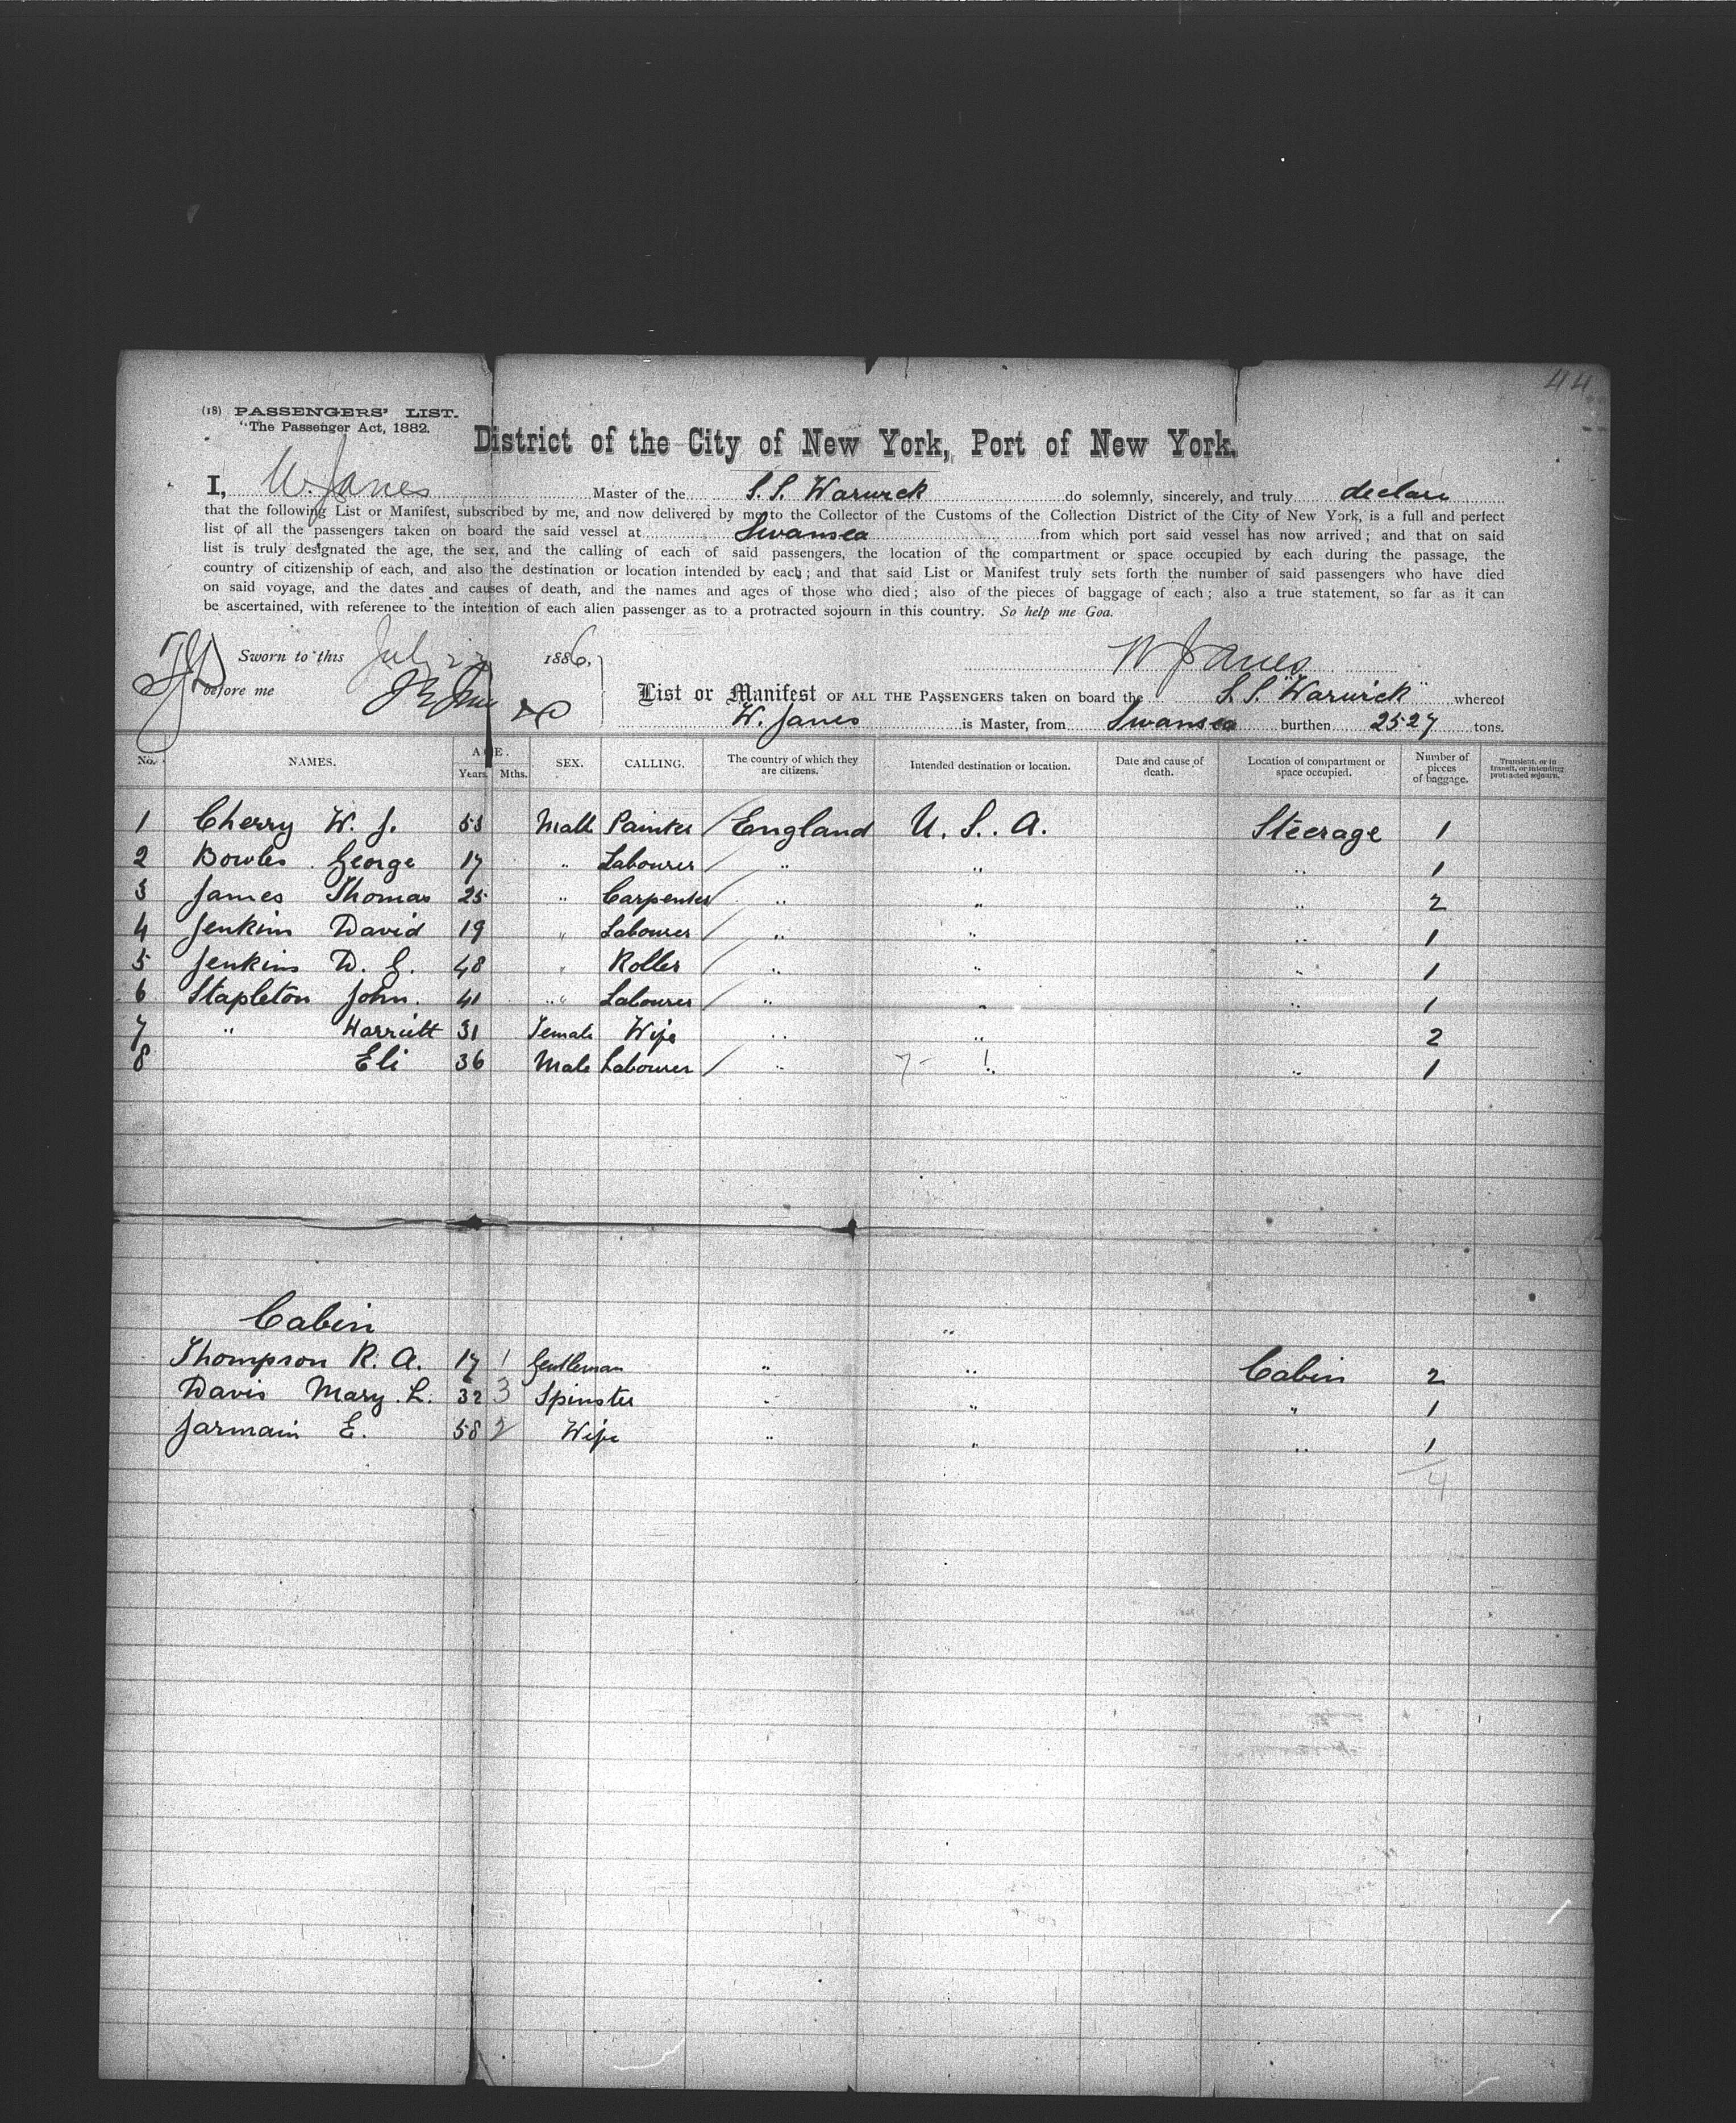 44
(18) PASSENGERS' LIST.
"The Passenger Act, 1882.
District of the City of New York, Port of New York.
I, W. Janes Master of the S.S. Warwick do solemnly, sincerely, and truly declare
that the following List or Manifest, subscribed by me, and now delivered by me to the Collector of the Customs of the Collection District of the City of New York, is a full and perfect
list of all the passengers taken on board the said vessel at Swansea from which port said vessel has now arrived; and that on said
list is truly designated the age, the sex, and the calling of each of said passengers, the location of the compartment or space occupied by each during the passage, the
country of citizenship of each, and also the destination or location intended by each; and that said List or Manifest truly sets forth the number of said passengers who have died
on said voyage, and the dates and causes of death, and the names and ages of those who died; also of the pieces of baggage of each; also a true statement, so far as it can
be ascertained, with reference to the intention of each alien passenger as to a protracted sojourn in this country. So help me God.
Sworn to this July 1886, W Janes
before me
List or Manifest OF ALL THE PASSENGERS taken on board the S.S. "Warwick" whereof
W. Janes is Master, from Swansea burthen 2527 tons.
No. NAMES. AGE. Years. Mths. SEX. CALLING. The country of which they are citizens. Intended destination or location. Date and cause of death. Location of compartment or space occupied. Number of pieces of baggage. Transient, or in transit, or intending protracted sojourn.
1 Cherry W. J. Male Painter / England U. S. A. Steerage 1
2 Bowles George 17 " Labourer / " " " 1
3 James Thomas 25 " Carpenter / " " " 2
4 Jenkins David 19 " Labourer / " " " 1
5 Jenkins D. G. 48 " Roller / " " " 1
6 Stapleton John. 41 " Labourer / " " " 1
7 " Harriett 31 Female Wife " " 2
8 Eli 36 Male Labourer / " 7- 1 " " 1
Cabin "
Thompson R. A. 17 1 Gentleman " " Cabin 2
Davis Mary L. 32 3 Spinster " " " 1
Jarmain E. 58 2 Wife " " " 1
4